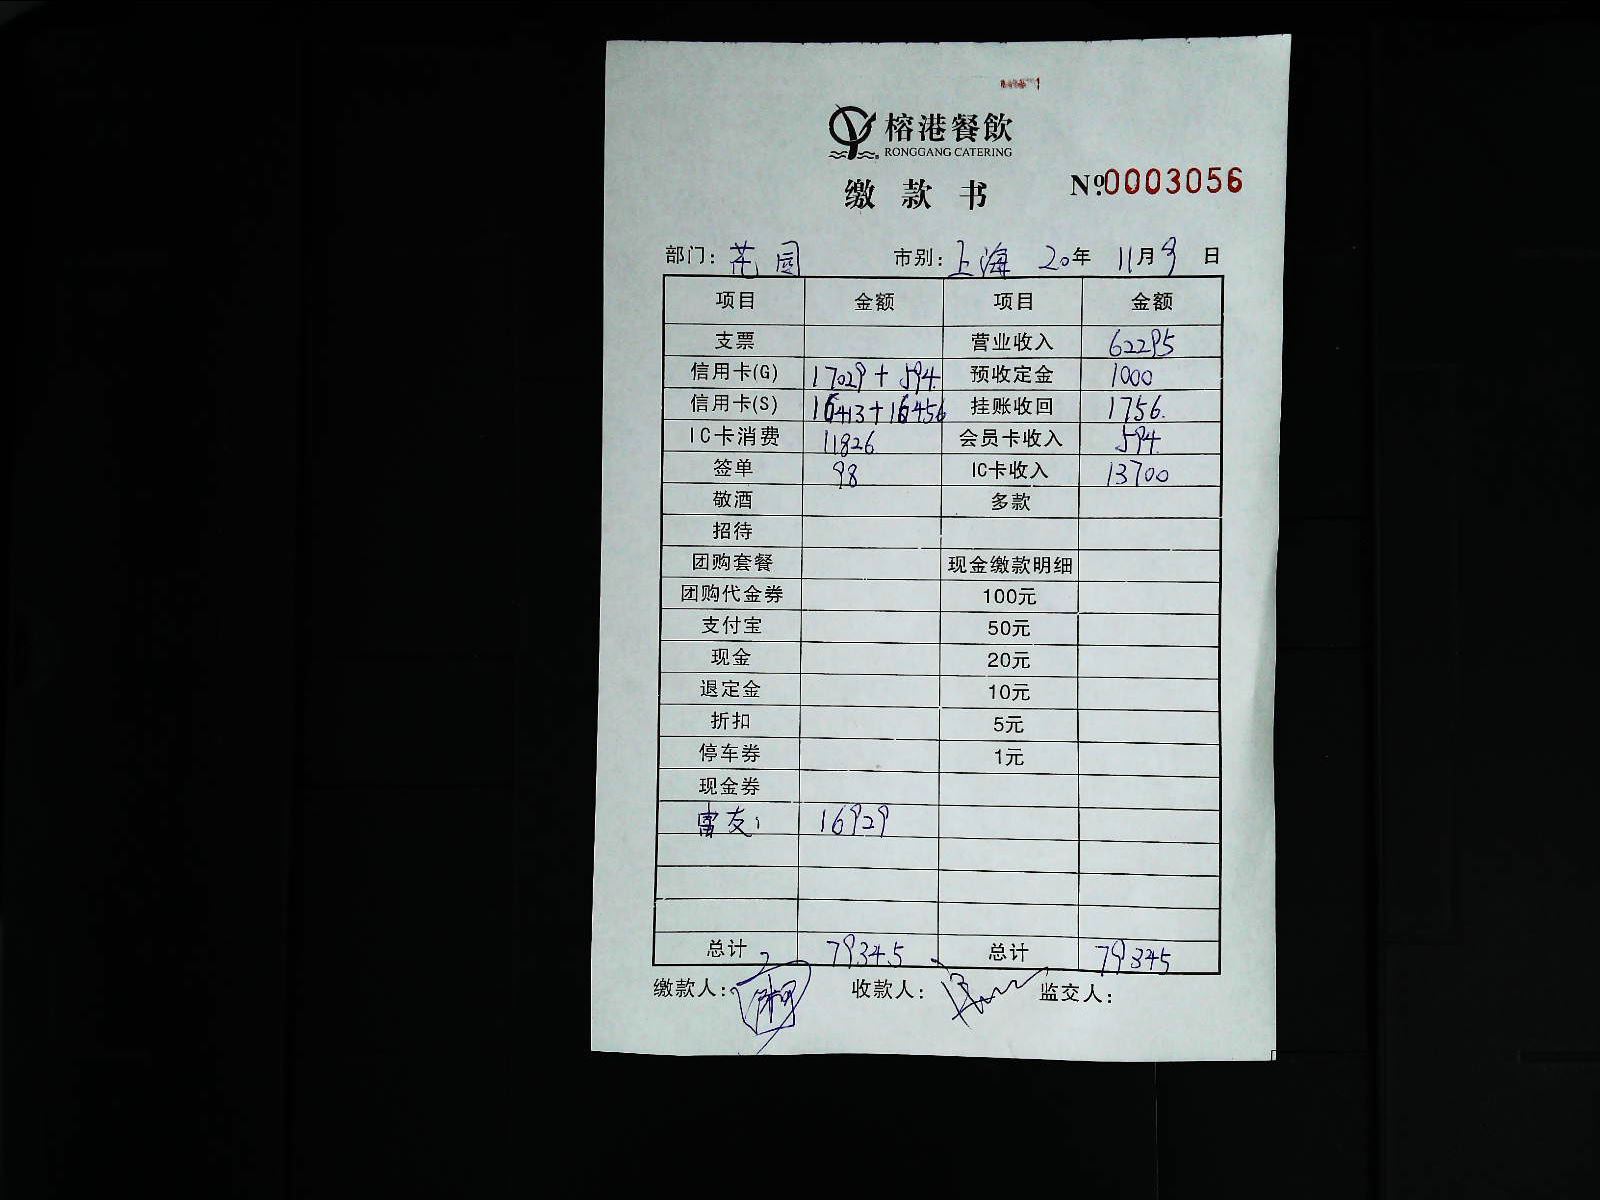 榕港餐飲
RONGGANG CATERING
缴款书 №0003056
部门: 花园 市别: 上海 20年 11月9日
项目 金额 项目 金额
支票 营业收入 62295
信用卡(G) 17029+594 预收定金 1000
信用卡(S) 16413+16456 挂账收回 1756.
IC卡消费 11826 会员卡收入 594.
签单 98 IC卡收入 13700
敬酒 多款
招待
团购套餐 现金缴款明细
团购代金券 100元
支付宝 50元
现金 20元
退定金 10元
折扣 5元
停车券 1元
现金券
友: 16929
总计 79345 总计 79345
缴款人: 收款人: 监交人: